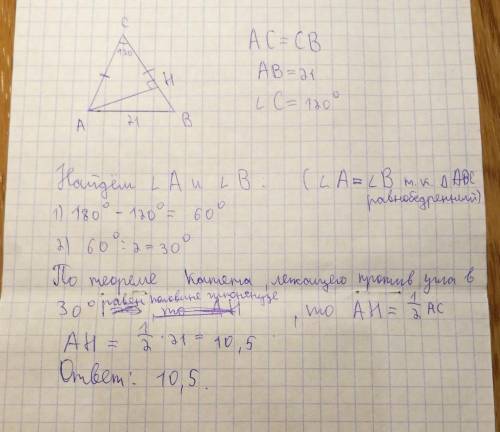 C
120
H
A
21
B
AC = CB
AB = 21
∠C = 120°
Найдём ∠A и ∠B. (∠A = ∠B т.к. △ABC
равнобедренный)
1) 180° - 120° = 60°
2) 60° : 2 = 30°
По теореме Катета, лежащего против угла в
30° равен половине гипотенузе, то AH = 1/2 AC
AH = 1/2 · 21 = 10,5
Ответ: 10,5.